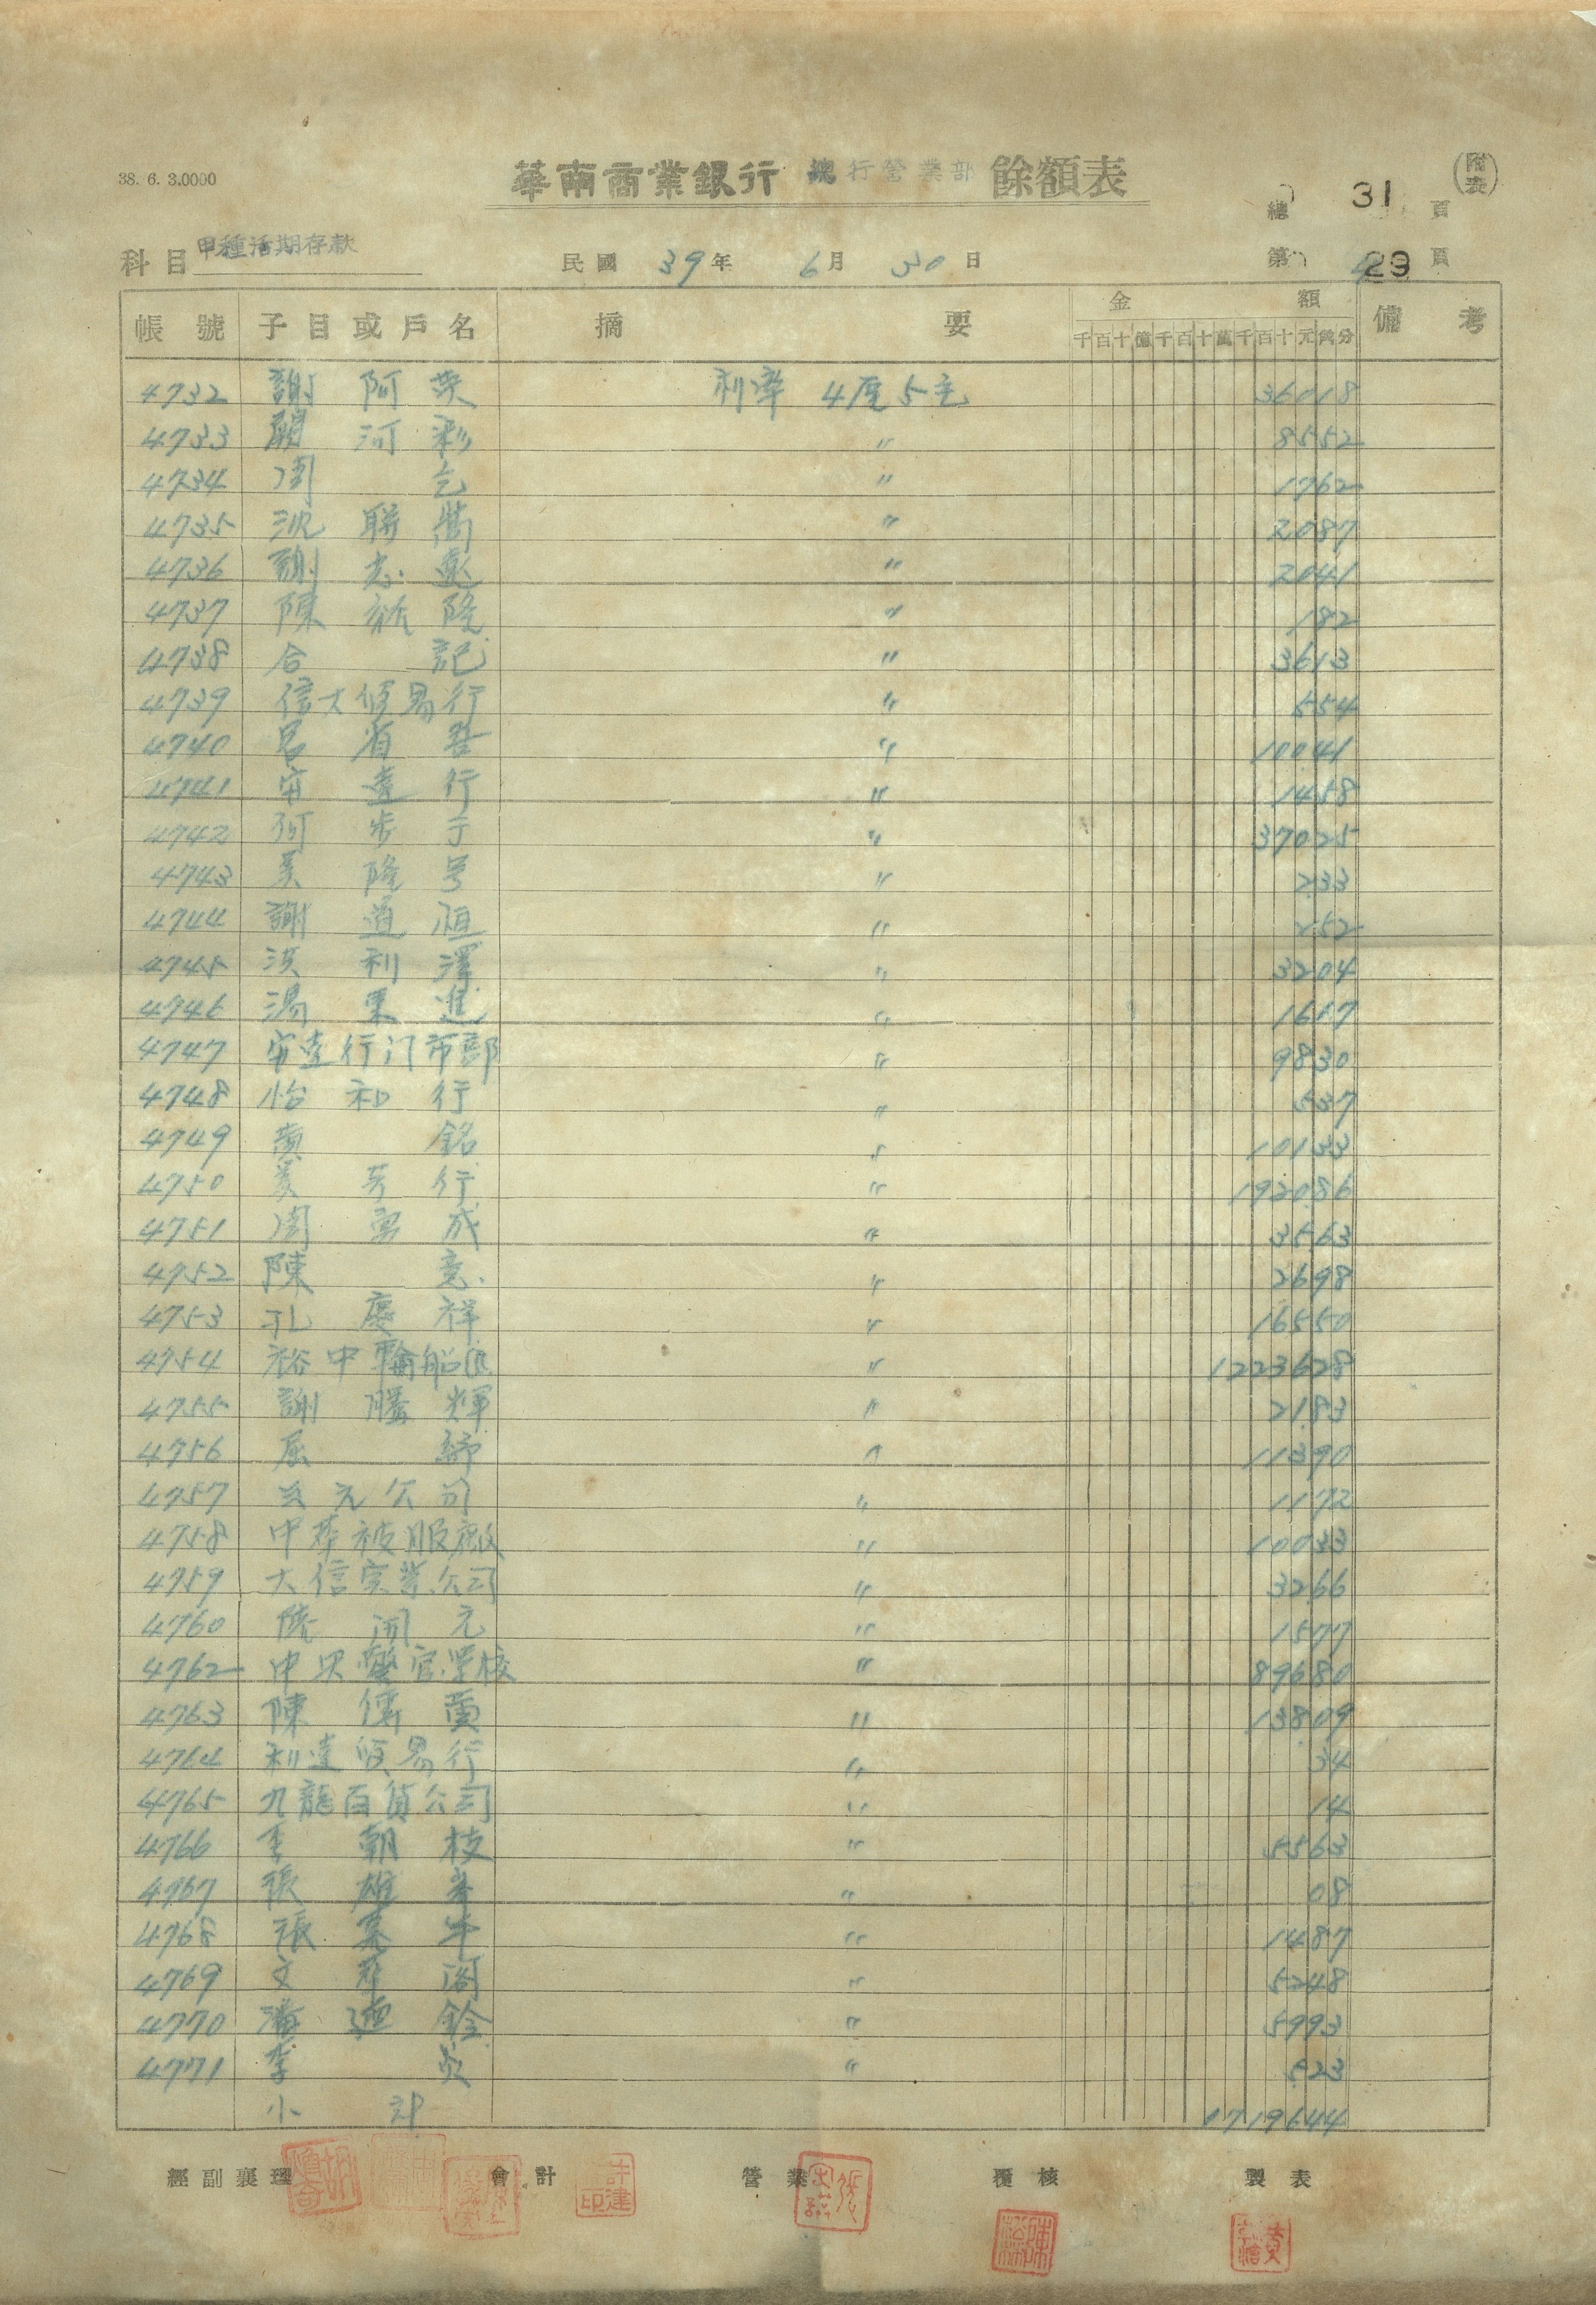 38. 6. 3.0000
華南商業銀行 總行營業部 餘額表
(附表)
總 31 頁
科目 甲種活期存款
民國 39年 6月 30日
第 29 頁
帳號 子目或戶名 摘要 金額 備考
千百十億千百十萬千百十元角分
4732 謝阿 利率 4厘5毛 36018
4733 顏河彩 〃 8552
4734 周 〃 1762
4735 沈聯 〃 2087
4736 謝志遠 〃 2041
4737 陳 隆 〃 182
4738 合記 〃 3613
4739 信大貿易行 〃 554
4740 呂省吾 〃 10041
4741 安達行 〃 1458
4742 何步 〃 37025
4743 美隆号 〃 233
4744 謝道恒 〃 252
4745 洪利澤 〃 3204
4746 湯 進 〃 1617
4747 安達行门市部 〃 9830
4748 怡和行 〃 537
4749 黃銘 〃 10133
4750 芳行 〃 192086
4751 周勇成 〃 3563
4752 陳意 〃 2698
4753 孔慶祥 〃 16550
4754 裕中輪船 〃 1223628
4755 謝騰輝 〃 2183
4756 屈 〃 11390
4757 元公司 〃 1172
4758 中華被服廠 〃 10033
4759 大信实業公司 〃 3266
4760 陸開元 〃 1577
4762 中央警官学校 〃 89680
4763 陳 〃 13809
4764 利達貿易行 〃 34
4765 九龍百貨公司 〃 14
4766 李朝枝 〃 5563
4767 張雄 〃 08
4768 張 〃 1487
4769 文華閣 〃 5248
4770 潘 銓 〃 5993
4771 李 〃 523
小計 1719644
經副襄理 會計 營業 覆核 製表